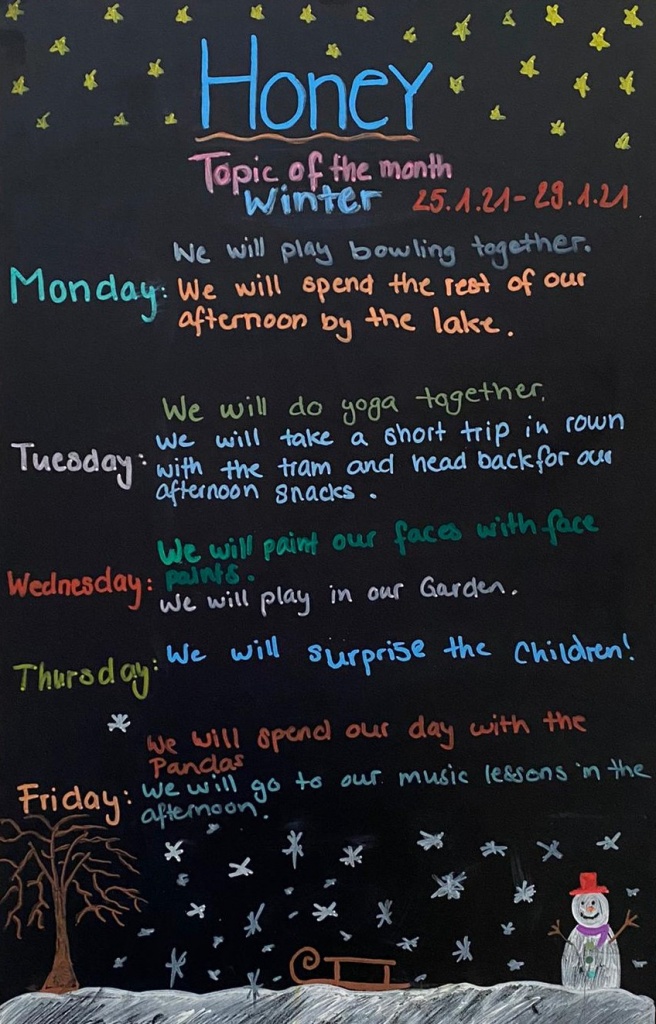 Honey
Topic of the month
Winter 25.1.21 - 29.1.21
We will play bowling together.
Monday: We will spend the rest of our
afternoon by the lake.
We will do yoga together.
we will take a short trip in rown
Tuesday: with the tram and head back for our
afternoon snacks.
We will paint our faces with face
paints.
Wednesday: We will play in our Garden.
Thursday: We will surprise the Children!
We will spend our day with the
Pandas
Friday: We will go to our music lessons in the
afternoon.